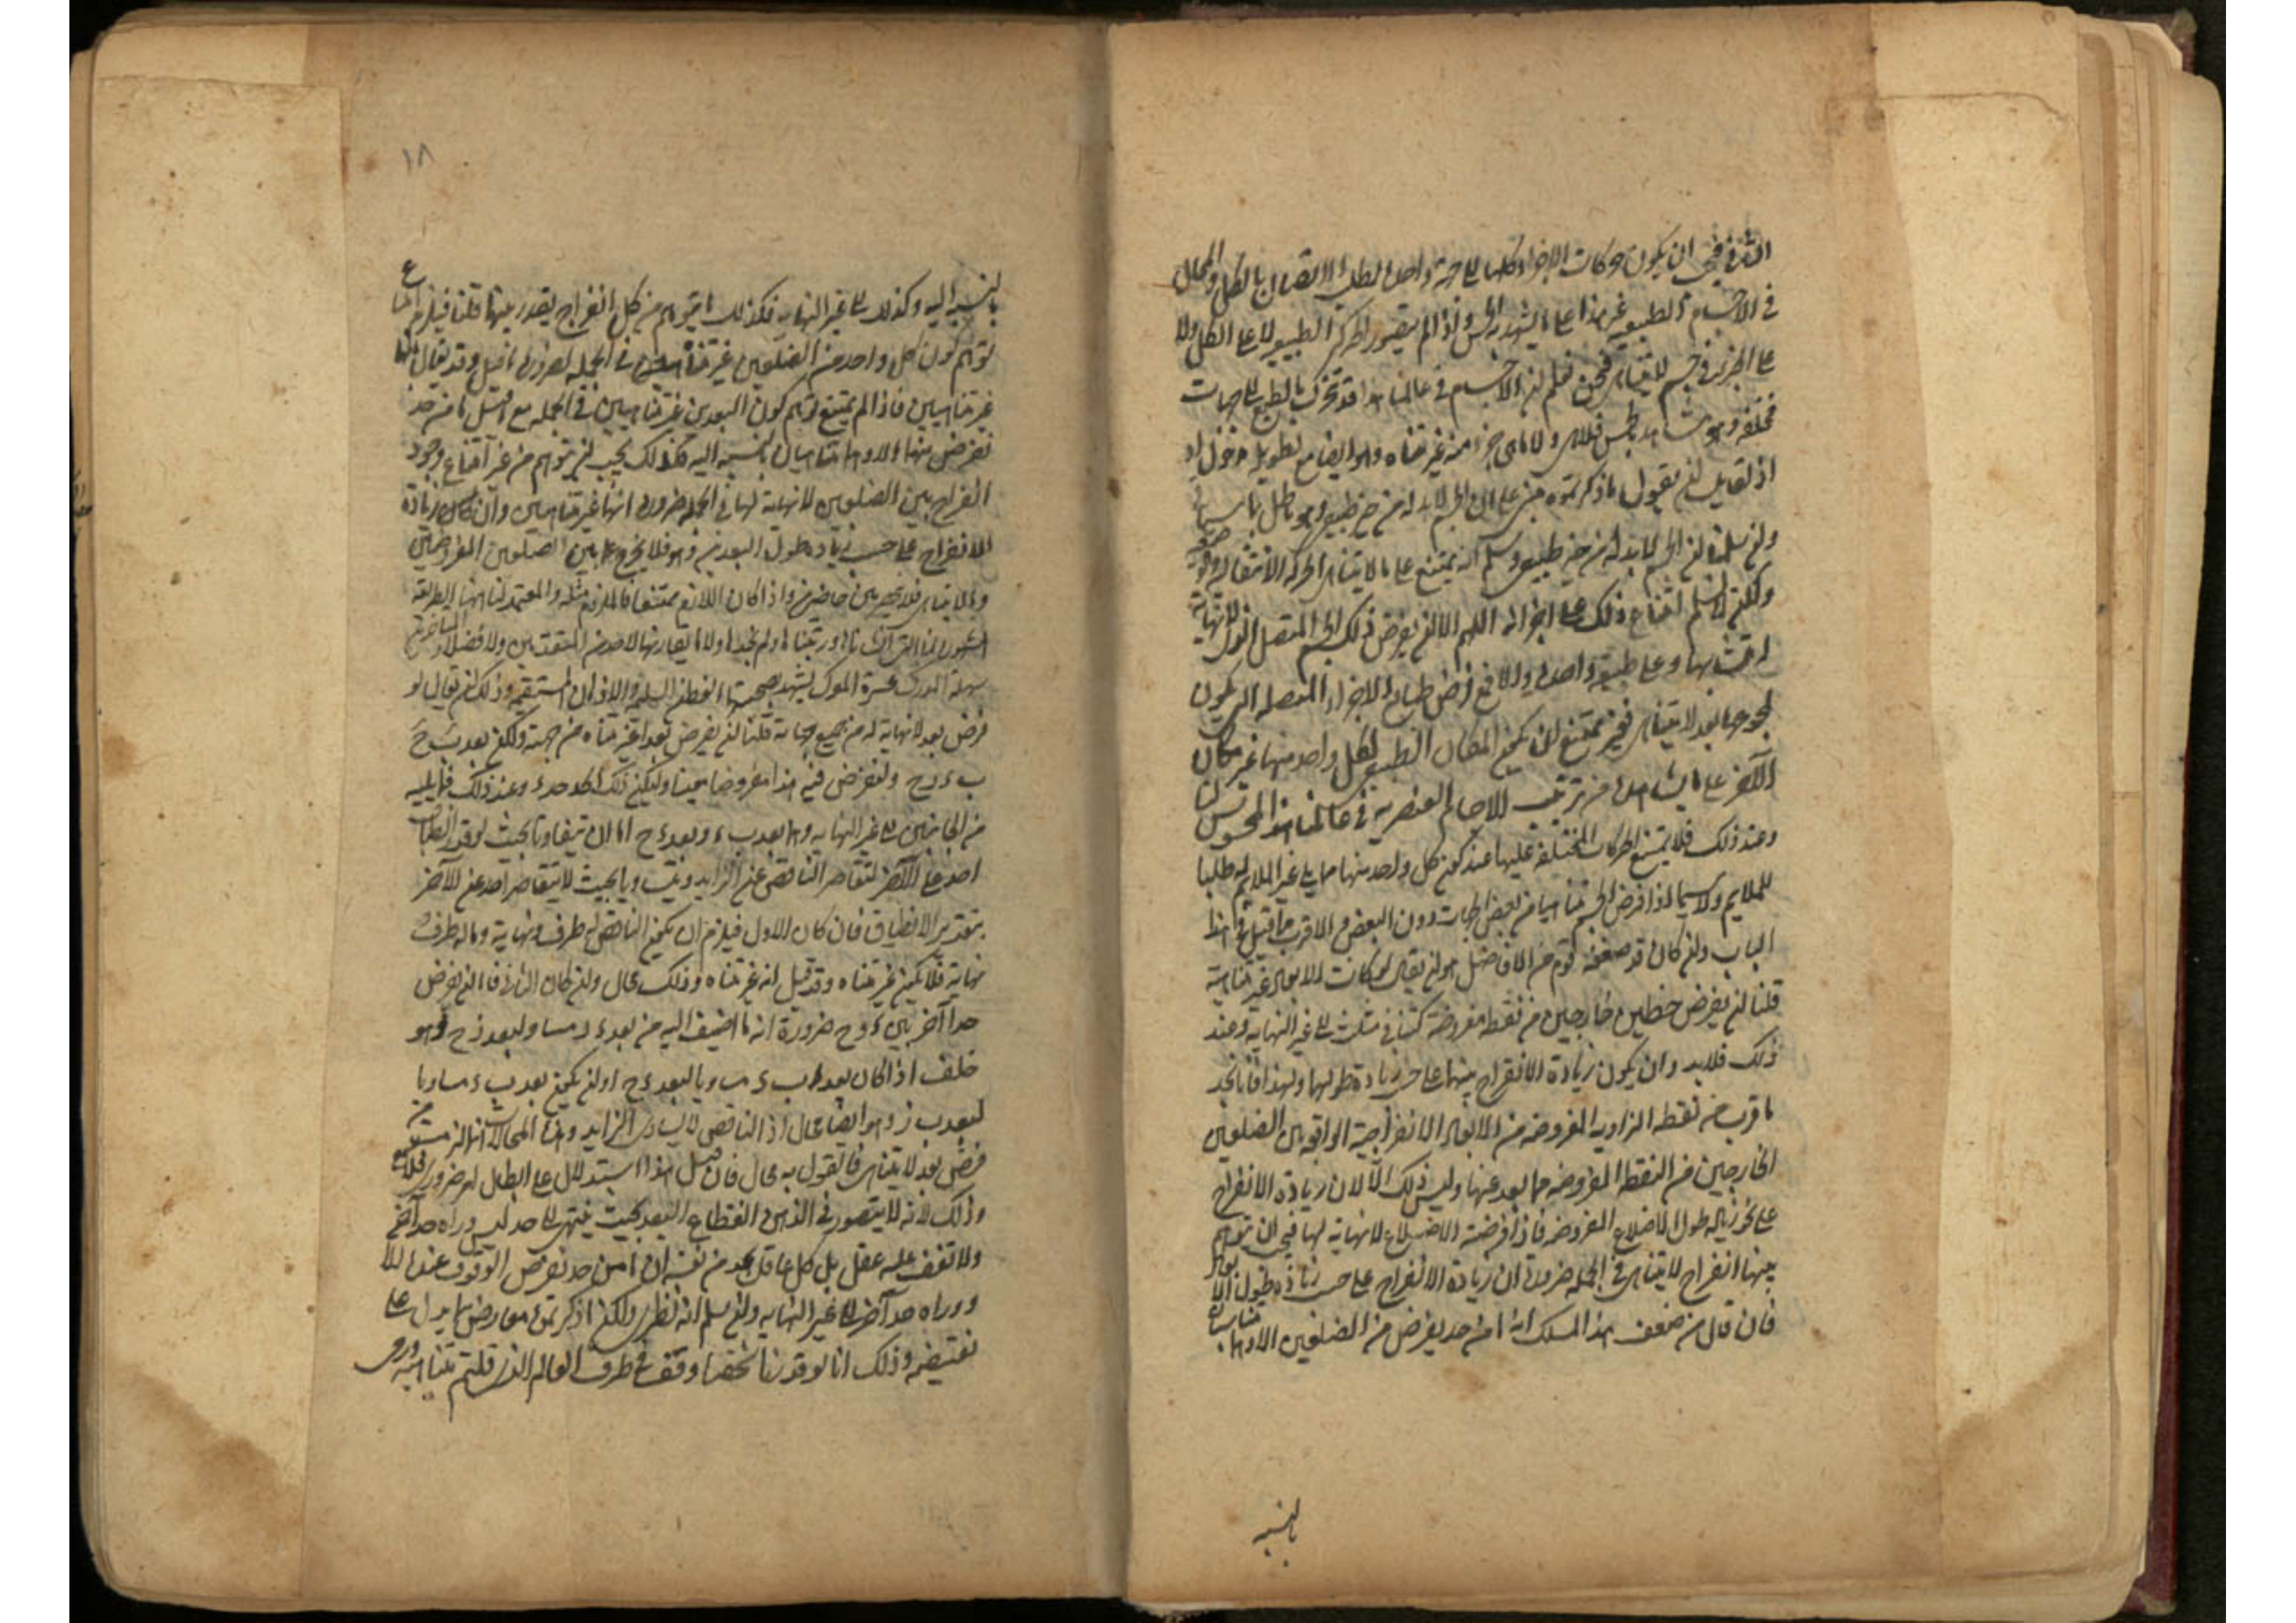 الثاني فيجب ان يكون حركات الاجزاء كلها الى جهة واحدة لطلب الاتصال بالكل والمحال
في الاجسام الطبيعية غير هذا على ما يشهد به الحس واذا لم يتصور الحركة الطبيعية لا على الكل ولا
على الجزء في جسم لا يتناهى فنحن نعلم ان الاجسام في عالمنا هذا قد تتحرك بالطبع الى جهات
مختلفة وهو مشاهد بالحس فلا شي ولا ما هي جزء منه غير متناه وهو ايضا مع تطويله مدخول اذ
اذ لقايل ان يقول ما ذكرتموه مبني على ان الجسم لا بد له من حيز طبيعي وهو باطل بما سياتي
ولئن سلمنا ان الجسم لا بد له من حيز طبيعي وسلم انه يمتنع على ما لا يتناهى الحركة الانتقالية
ولكن لا نسلم امتناع ذلك على اجزائه اللهم الا ان يفرض ذلك الجسم المتصل الذي لا نهاية
له متشابها وعلى طبيعة واحدة والا فمع فرض طبايع الاجزاء المتصلة التي يكون
لمجموعها بعد لا يتناهى فغير ممتنع ان يكون المكان الطبيعي لكل واحد منها غير مكان
الآخر على ما يشاهد من ترتيب الاجسام العنصرية في عالمنا هذا المحسوس لنا
وعند ذلك فلا يمتنع الحركات المختلفة عليها عند كون كل واحد منها مما يلي غير الملايم له طلبا
للملايم ولا سيما اذا فرض الجسم متناهيا من بعض الجهات دون البعض والاقرب ما قيل في هذا
الباب وان كان قد ضعفه قوم من الافاضل هو ان يقال لو كانت الابعاد غير متناهية
قلنا ان نفرض خطين خارجين من نقطة مفروضة كساقي مثلث الى غير النهاية وعند
ذلك فلا بد وان يكون زيادة الانفراج بينهما على حسب زيادة طولهما ولهذا فانا نجد
ما قرب من نقطة الزاوية المفروضة من الابعاد الانفراجية الواقعة بين الضلعين
الخارجين من النقطة المفروضة مما بعد عنها وليس ذلك الا لان زيادة الانفراج
على نحو زيادة طول الاضلاع المفروضة فاذا فرضت الاضلاع لا نهاية لها فيجب ان يتوهم
بينها انفراج لا يتناهى في الجملة ضرورة ان زيادة الانفراج على حسب زيادة طول الابعاد
فان قال من ضعف هذا المسلك انه ما من حد يفرض من الضلعين الا وهما متناهيان
بالنسبة
١٨
بالنسبة اليه وكذلك الى غير النهاية فكذلك ما يتوهم من كل انفراج يقدر بينهما قلنا فيلزم امتناع
توهم كون كل واحد من الضلعين غير متناه في الجملة لضرورة ما قيل وقد يقال انهما
غير متناهيين فاذا لم يمتنع توهم كون البعدين غير متناهيين في الجملة مع انه ما من حد
نفرض منهما الا وهما متناهيان بالنسبة اليه فكذلك يجب ان يتوهم من غير امتناع وجود
انفراج بين الضلعين لا نهاية لها في الجملة ضرورة انهما غير متناهيين وان كان زيادة
الانفراج على حسب زيادة طول البعدين وهو فلا يخرج عما بين الضلعين المفروضين
وما لا يتناهى فلا ينحصر بين حاصرين واذا كان اللازم ممتنعا فالملزوم مثله والمعتمد لنا ههنا الطريقة
سهلة المدرك عسرة المعرك يشهد بصحتها الفطر السليمة والاذهان المستقيمة وذلك ان يقال لو
فرض بعد لا نهاية له من جميع جهاته قلنا ان نفرض بعدا غير متناه من جهة ولكن بعد ب ج
ب ء ح ونفرض فيه هذا مفروضا معينا وليكن ذلك الحد حد ء وعند ذلك فما يليه
من الجانبين الى غير النهاية وهما بعد ب ء وبعد ء ح اما ان يتفاوتا بحيث لو قدر انطباق
احدهما على الآخر لتقاصر الناقص عن الزايد ويتساويا بحيث لا يتقاصر احدهما عن الآخر
بتقدير الانطباق فان كان الاول فيلزم ان يكون الناقص له طرف ونهاية وما له طرف
نهاية فلا يكون غير متناه وقد قيل انه غير متناه وذلك محال وان كان الثاني فلنا ان نفرض
حدا آخر بين ء و ح ضرورة انه ما اضيف اليه من بعد ء ز مساو لبعد ز ح وهو
خلف اذا كان بعد ب ء مساويا لبعد ء ح او ان يكون بعد ب ء مساويا
لبعد ب ز وهو ايضا محال اذ الناقص لا يساوي الزايد وهذه المحالات انما لزمت من
فرض بعد لا يتناهى فالقول به محال فان قيل هذا استدلال على ابطال امر ضروري فلا يسمع
وذلك لانه لا يتصور في الذهن انقطاع البعد بحيث ينتهي الى حد ليس وراه حد آخر
ولا تقف عليه عقل بل كل عاقل يجد من نفسه ان ما من حد نفرض الوقوف عنده الا
ووراه حد آخر الى غير النهاية ولئن سلم انه نظري ولكن ما ذكرتموه معارض بما يدل على
نقيضه وذلك انا لو قدرنا شخصا وقف على طرف العالم الذي قلتم بتناهيه